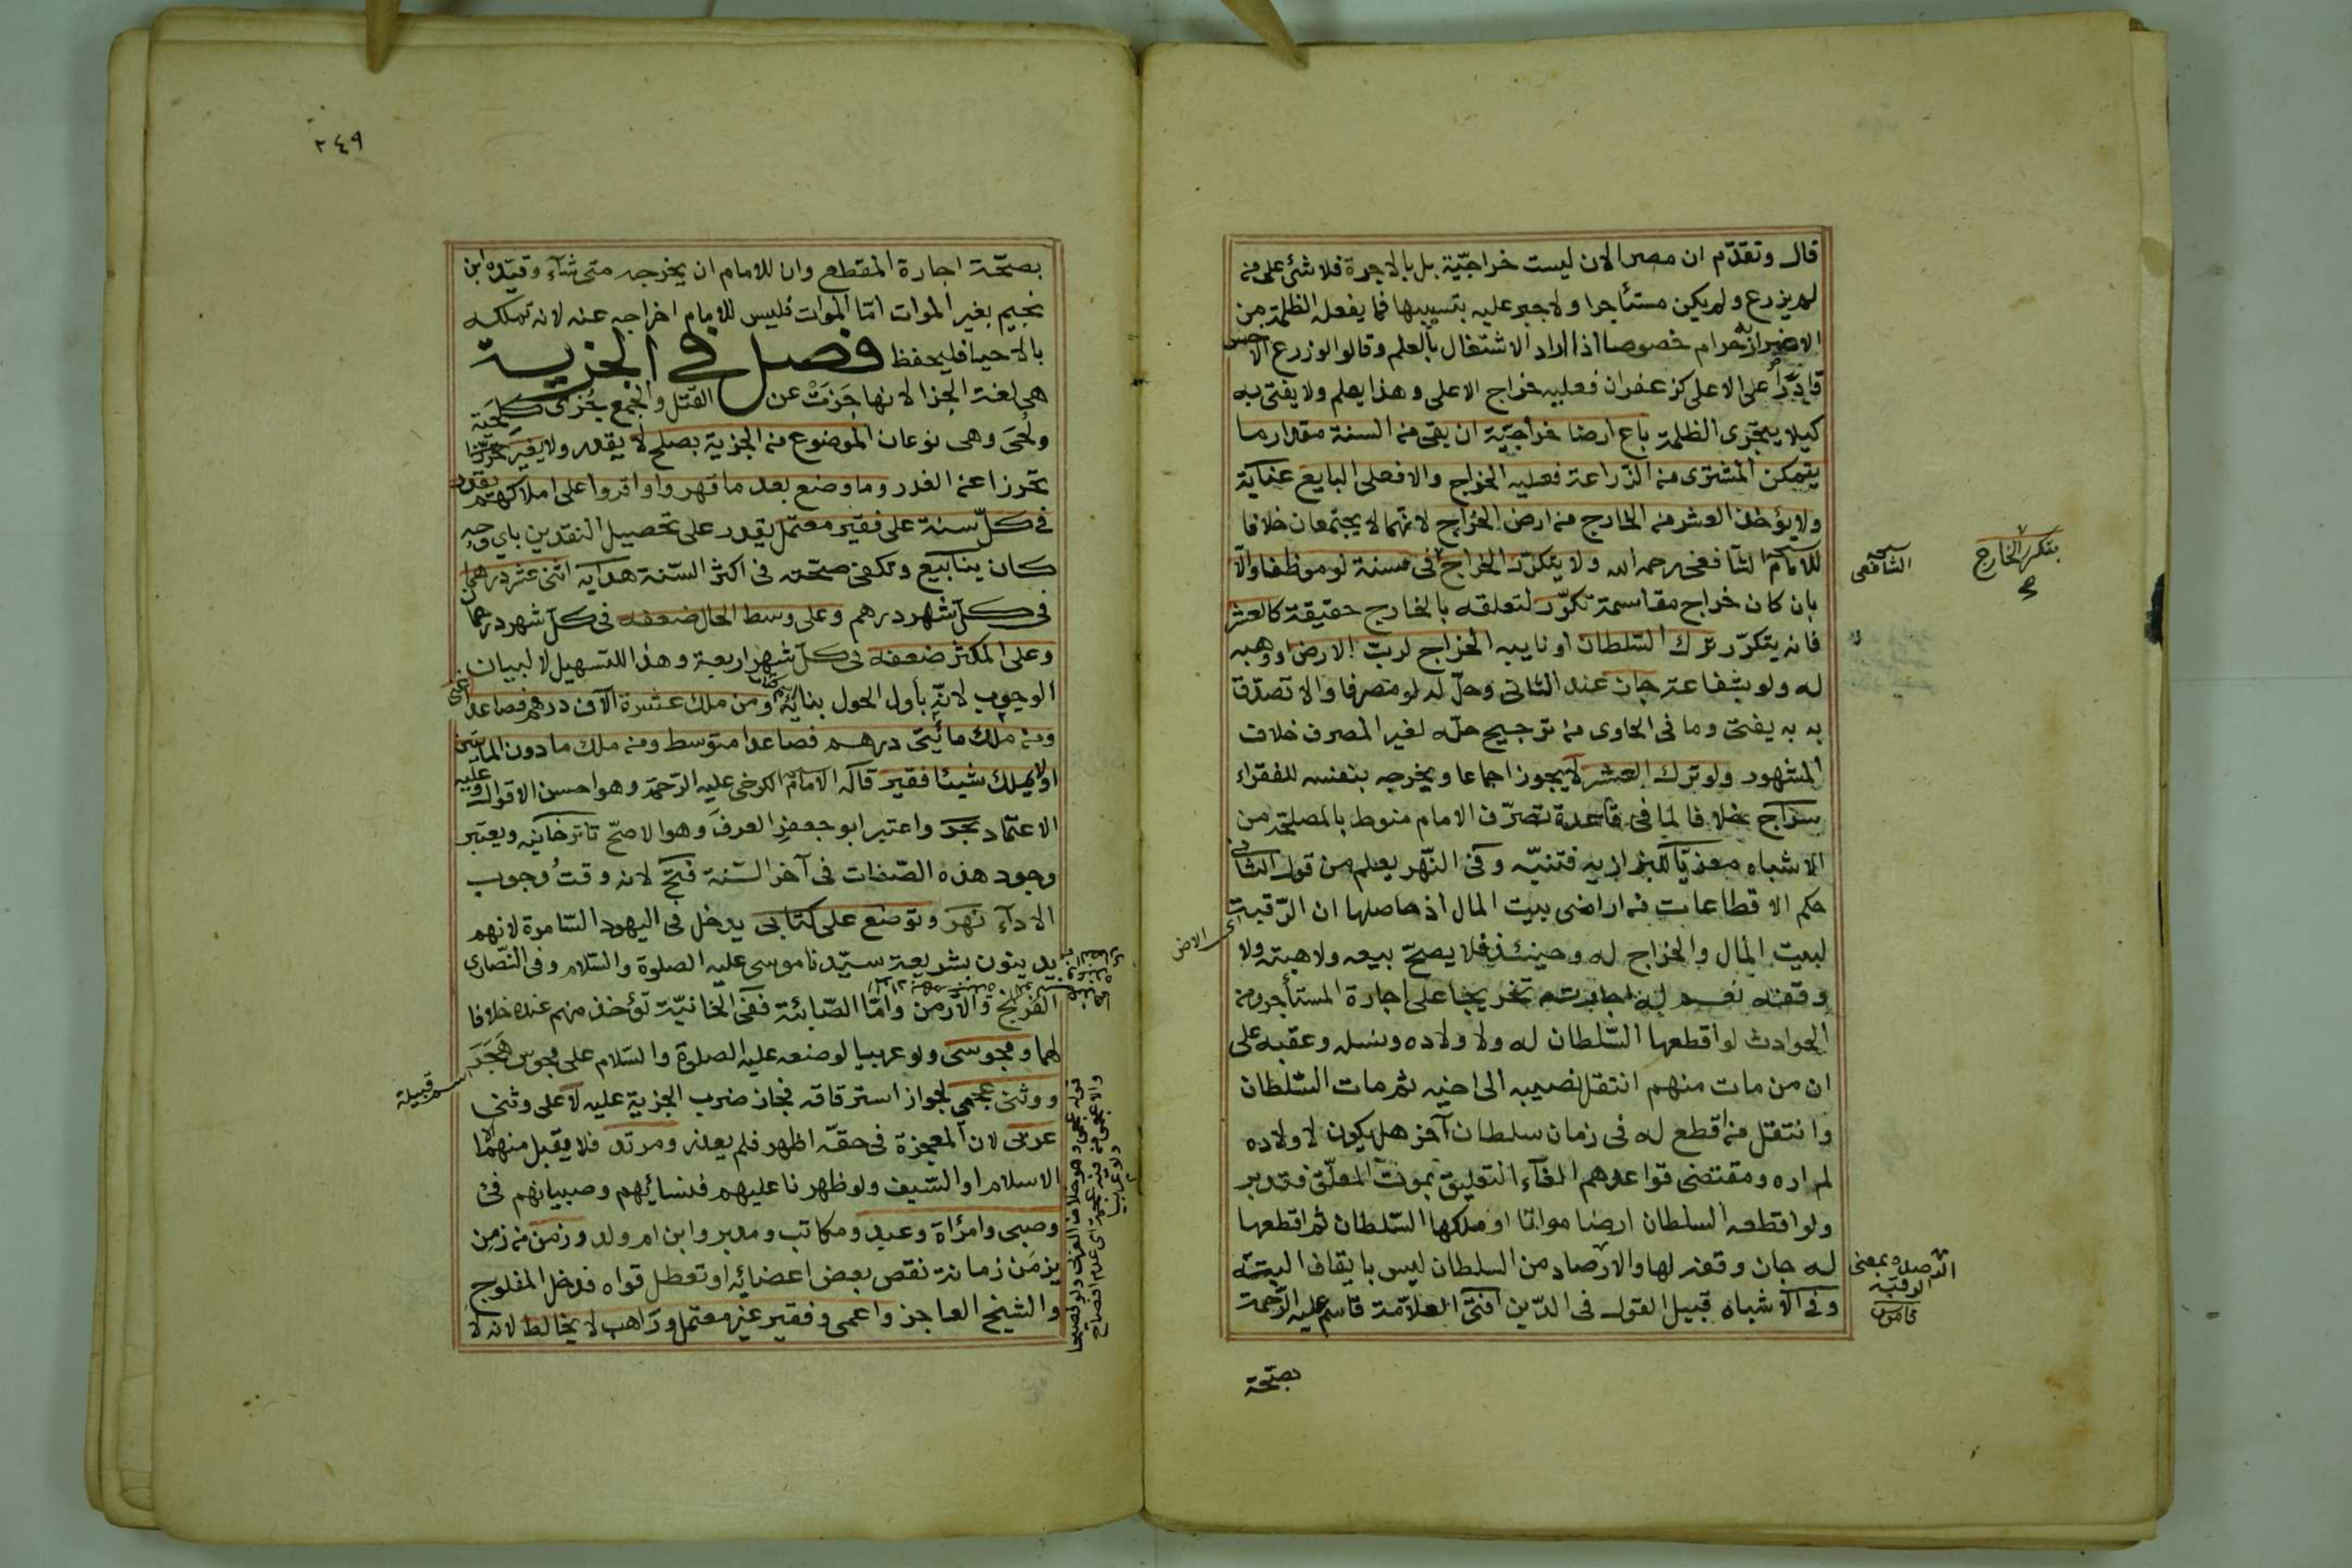 قال وتقدّم ان مصر الان ليست خراجيّة بل بالاجرة فلا شئ على من
لم يزرع ولم يكن مستأجرا ولا جبر عليه بتسييبها فما يفعله الظلمة من
الاضرار به حرام خصوصا اذا اراد الاشتغال بالعلم وقالوا لو زرع الاخس
قادرًا على الاعلى كزعفران فعليه خراج الاعلى وهذا يعلم ولا يفتى به
كيلا يتجرّى الظلمة باع ارضا خراجيّة ان بقى من السنة مقدار ما
يتمكن المشترى من الزراعة فعليه الخراج والا فعلى البايع عناية
ولا يؤخذ العشر من الخارج من ارض الخراج لانهما لا يجتمعان خلافا
للامام الشافعى رحمه الله ولا يتكرّر الخراج فى سنة لو موظفا والّا
بان كان خراج مقاسمة تكرّر لتعلقه بالخارج حقيقة كالعشر
فانه يتكرّر ترك السّلطان او نايبه الخراج لربّ الارض او وهبه
له ولو بشفاعة جاز عند الثانى وحلّ له لو مصرفا والا تصدّق
به به يفتى وما فى الحاوى من ترجيح حلّه لغير المصرف خلاف
المشهور ولو ترك العشر لا يجوز اجماعا ويخرجه بنفسه للفقراء
سراج خلافا لما فى قاعدة تصرّف الامام منوط بالمصلحة من
الاشباه معزيّا للبزازيه فتنبّه وفى النّهر يعلم من قول الثانى
حكم الاقطاعات من اراضى بيت المال اذ حاصلها ان الرّقبة
لبيت المال والخراج له وحينئذ فلا يصحّ بيعه ولا هبته ولا
وقفه نعم له اجارته تخريجا على اجارة المستأجر ومن
الحوادث لو اقطعها السّلطان له ولاولاده ونسله وعقبه على
ان من مات منهم انتقل نصيبه الى اخيه ثم مات السّلطان
وانتقل من اقطع له فى زمان سلطان آخر هل يكون لاولاده
لم اره ومقتضى قواعدهم الغاء التعليق بموت المعلّق فتدبر
ولو اقطعه السلطان ارضا مواتا او ملكها السّلطان ثم اقطعها
له جاز وقفه لها والارصاد من السلطان ليس بايقاف البتّه
وفى الاشباه قبيل القول فى الدّين افتى العلامّة قاسم عليه الرّحمة
بصحّة
يتكرر الخارج
الشافعى
اى الارض
الترصد بمعنى
الرقبة
قاموس
٢٤٩
بصحّة اجارة المقطع وان للامام ان يخرجه متى شآء وقيّده ابن
نجيم بغير الموات امّا الموات فليس للامام اخراجه عنه لانه تملكه
بالاحيا فليحفظ فصل فى الجزية
هى لغة الجزا لانها جَزَتْ عن القتل والجمع جُزًى كلحية
ولُحىَ وهى نوعان الموضوع من الجزية بصلح لا يقدر ولا يغير
تحرزا عن الغدر وما وضع بعد ما قهروا واقروا على املاكهم يقدر
فى كلّ سنة على فقير معتمل يقدر على تحصيل النقدين باى وجه
كان ينابيع وتكفى صحّته فى اكثر السّنة هدايه اثنى عشر درهما
فى كلّ شهر درهم وعلى وسط الحال ضعفه فى كلّ شهر درهمان
وعلى المكثر ضعفه فى كلّ شهر اربعة وهذا للتسهيل لا لبيان
الوجوب لانه بأول الحول بناية ومن ملك عشرة آلاف درهم فصاعدا غنى
ومن ملك مائتى درهم فصاعدا متوسط ومن ملك ما دون المائتين
او لا يملك شيئا فقير قاله الامام الكرخى عليه الرّحمة وهو احسن الاقوال وعليه
الاعتماد بحر واعتبر ابو جعفر العرف وهو الاصحّ تاترخانيه ويعتبر
وجود هذه الصّفات فى آخر السّنة فتح لانه وقتُ وجوب
الادآء نهر وتوضع على كتابى يدخل فى اليهود السّامرة لانهم
يدينون بشريعة سيّدنا موسى عليه الصلوة والسّلام وفى النّصارى
الفرنج والارمن وامّا الصّابئة ففى الخانيّة تؤخذ منهم عنده خلافا
لهما ومجوسى ولو عربيا لوضعه عليه الصلوة والسّلام على مجوس هَجَرَ
ووثنى عجمى لجواز استرقاقه فجاز ضرب الجزية عليه لا على وثنى
عربى لان المعجزة فى حقّه اظهر فلم يعذر ومرتد فلا يقبل منهما الا
الاسلام او السّيف ولو ظهرنا عليهم فنسائهم وصبيانهم فئ
وصبى وامرأة وعبد ومكاتب ومدبر وابن ام ولد وزمن من زمن
يزمَن زمانة نقص بعض اعضائه او تعطل قواه فدخل المفلوج
والشيخ العاجز واعمى وفقير غير معتمل وراهب لا يخالط لانه لا
اسم قبيلة
قوله عجمى وهو خلاف العربى ولو فصيحا
والاعجمى من فيه عجمة اى عدم افصاح
ولو عربيا